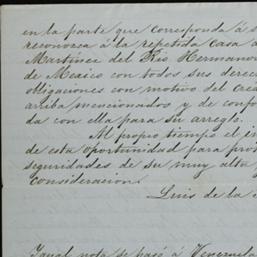 en la parte que corresponda á s
reconozca á la repetida casa d
Martínez del Rio Hermanos
de Mexico con todos sus derec
obligaciones con motivo del cré
arriba mencionados y de confo
da con ella para su arreglo.
Al propio tiempo el in
de esta oportunidad para pro
seguridades de su muy alta
consideracion.
Luis de la
Igual nota se pasó á Venezuela